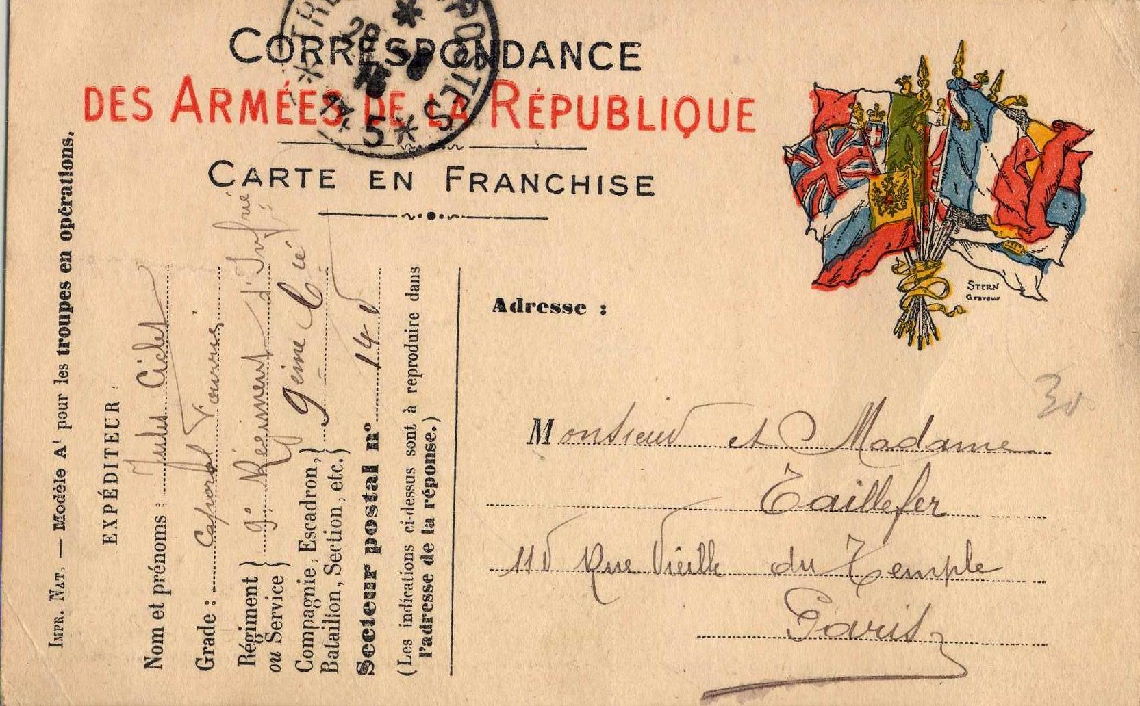 CORRESPONDANCE
DES ARMÉES DE LA RÉPUBLIQUE
CARTE EN FRANCHISE
TRÉ POSTES
28
15
* 5 *
STERN
Graveur
Adresse :
30
Monsieur et Madame
Taillefer
110 Rue Vieille du Temple
Paris
IMPR. NAT. — Modèle A¹ pour les troupes en opérations.
EXPÉDITEUR :
Nom et prénoms : Jules
Grade : Caporal Fourrier
Régiment ou Service } 9e Régiment d'Infrie
Compagnie, Escadron, Bataillon, Section, etc. } 9ème Cie
Secteur postal n° 140
(Les indications ci-dessus sont à reproduire dans
l'adresse de la réponse.)